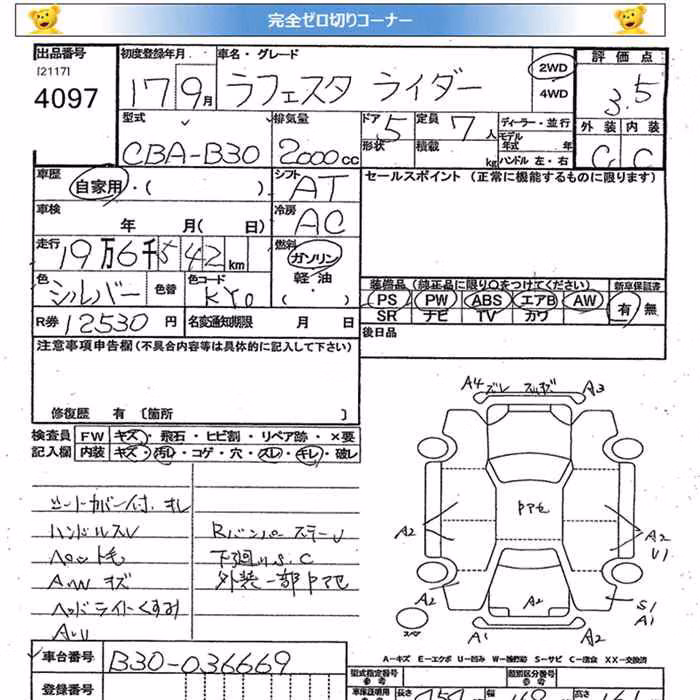 完全ゼロ切りコーナー
出品番号 初度登録年月 車名・グレード 2WD 評価点
[2117] 4097 17 9月 ラフェスタ ライダー 4WD 3.5
型式 排気量 ドア 5 定員 7人 ディーラー・並行 外装 内装
CBA-B30 2000cc 形状 積載 kg モデル年式 年 ハンドル 左・右 C C
車歴 自家用・( ) シフト AT セールスポイント (正常に機能するものに限ります)
車検 年 月( 日) 冷房 AC
走行 19万6千542km 燃料 ガソリン
軽油
・( )
色 シルバー 色替 色コード KY0
装備品 (純正品に限り○をつけてください) 新車保証書
PS PW ABS エアB AW 有・無
SR ナビ TV カワ
R券 12530円 名変通知期限 月 日 後日品
注意事項申告欄 (不具合内容等は具体的に記入して下さい)
修復歴 有 [箇所 ]
検査員 FW キズ・飛石・ヒビ割・リペア跡・×要
記入欄 内装 キズ・汚レ・コゲ・穴・スレ・キレ・破レ
シートカバー付. キレ
ハンドルスレ
ペット毛
AW キズ
ヘッドライトくすみ
Rバンパーステー
下廻りS.C
外装一部
A4 ズレ A3
A2 A2
U1
A2 A2 S1
A1
スペア A1 A2
A-キズ E-エクボ U-凹み S-サビ C-腐食 XX-交換済
車台番号 B30-036669
登録番号
型式指定番号 類別区分番号